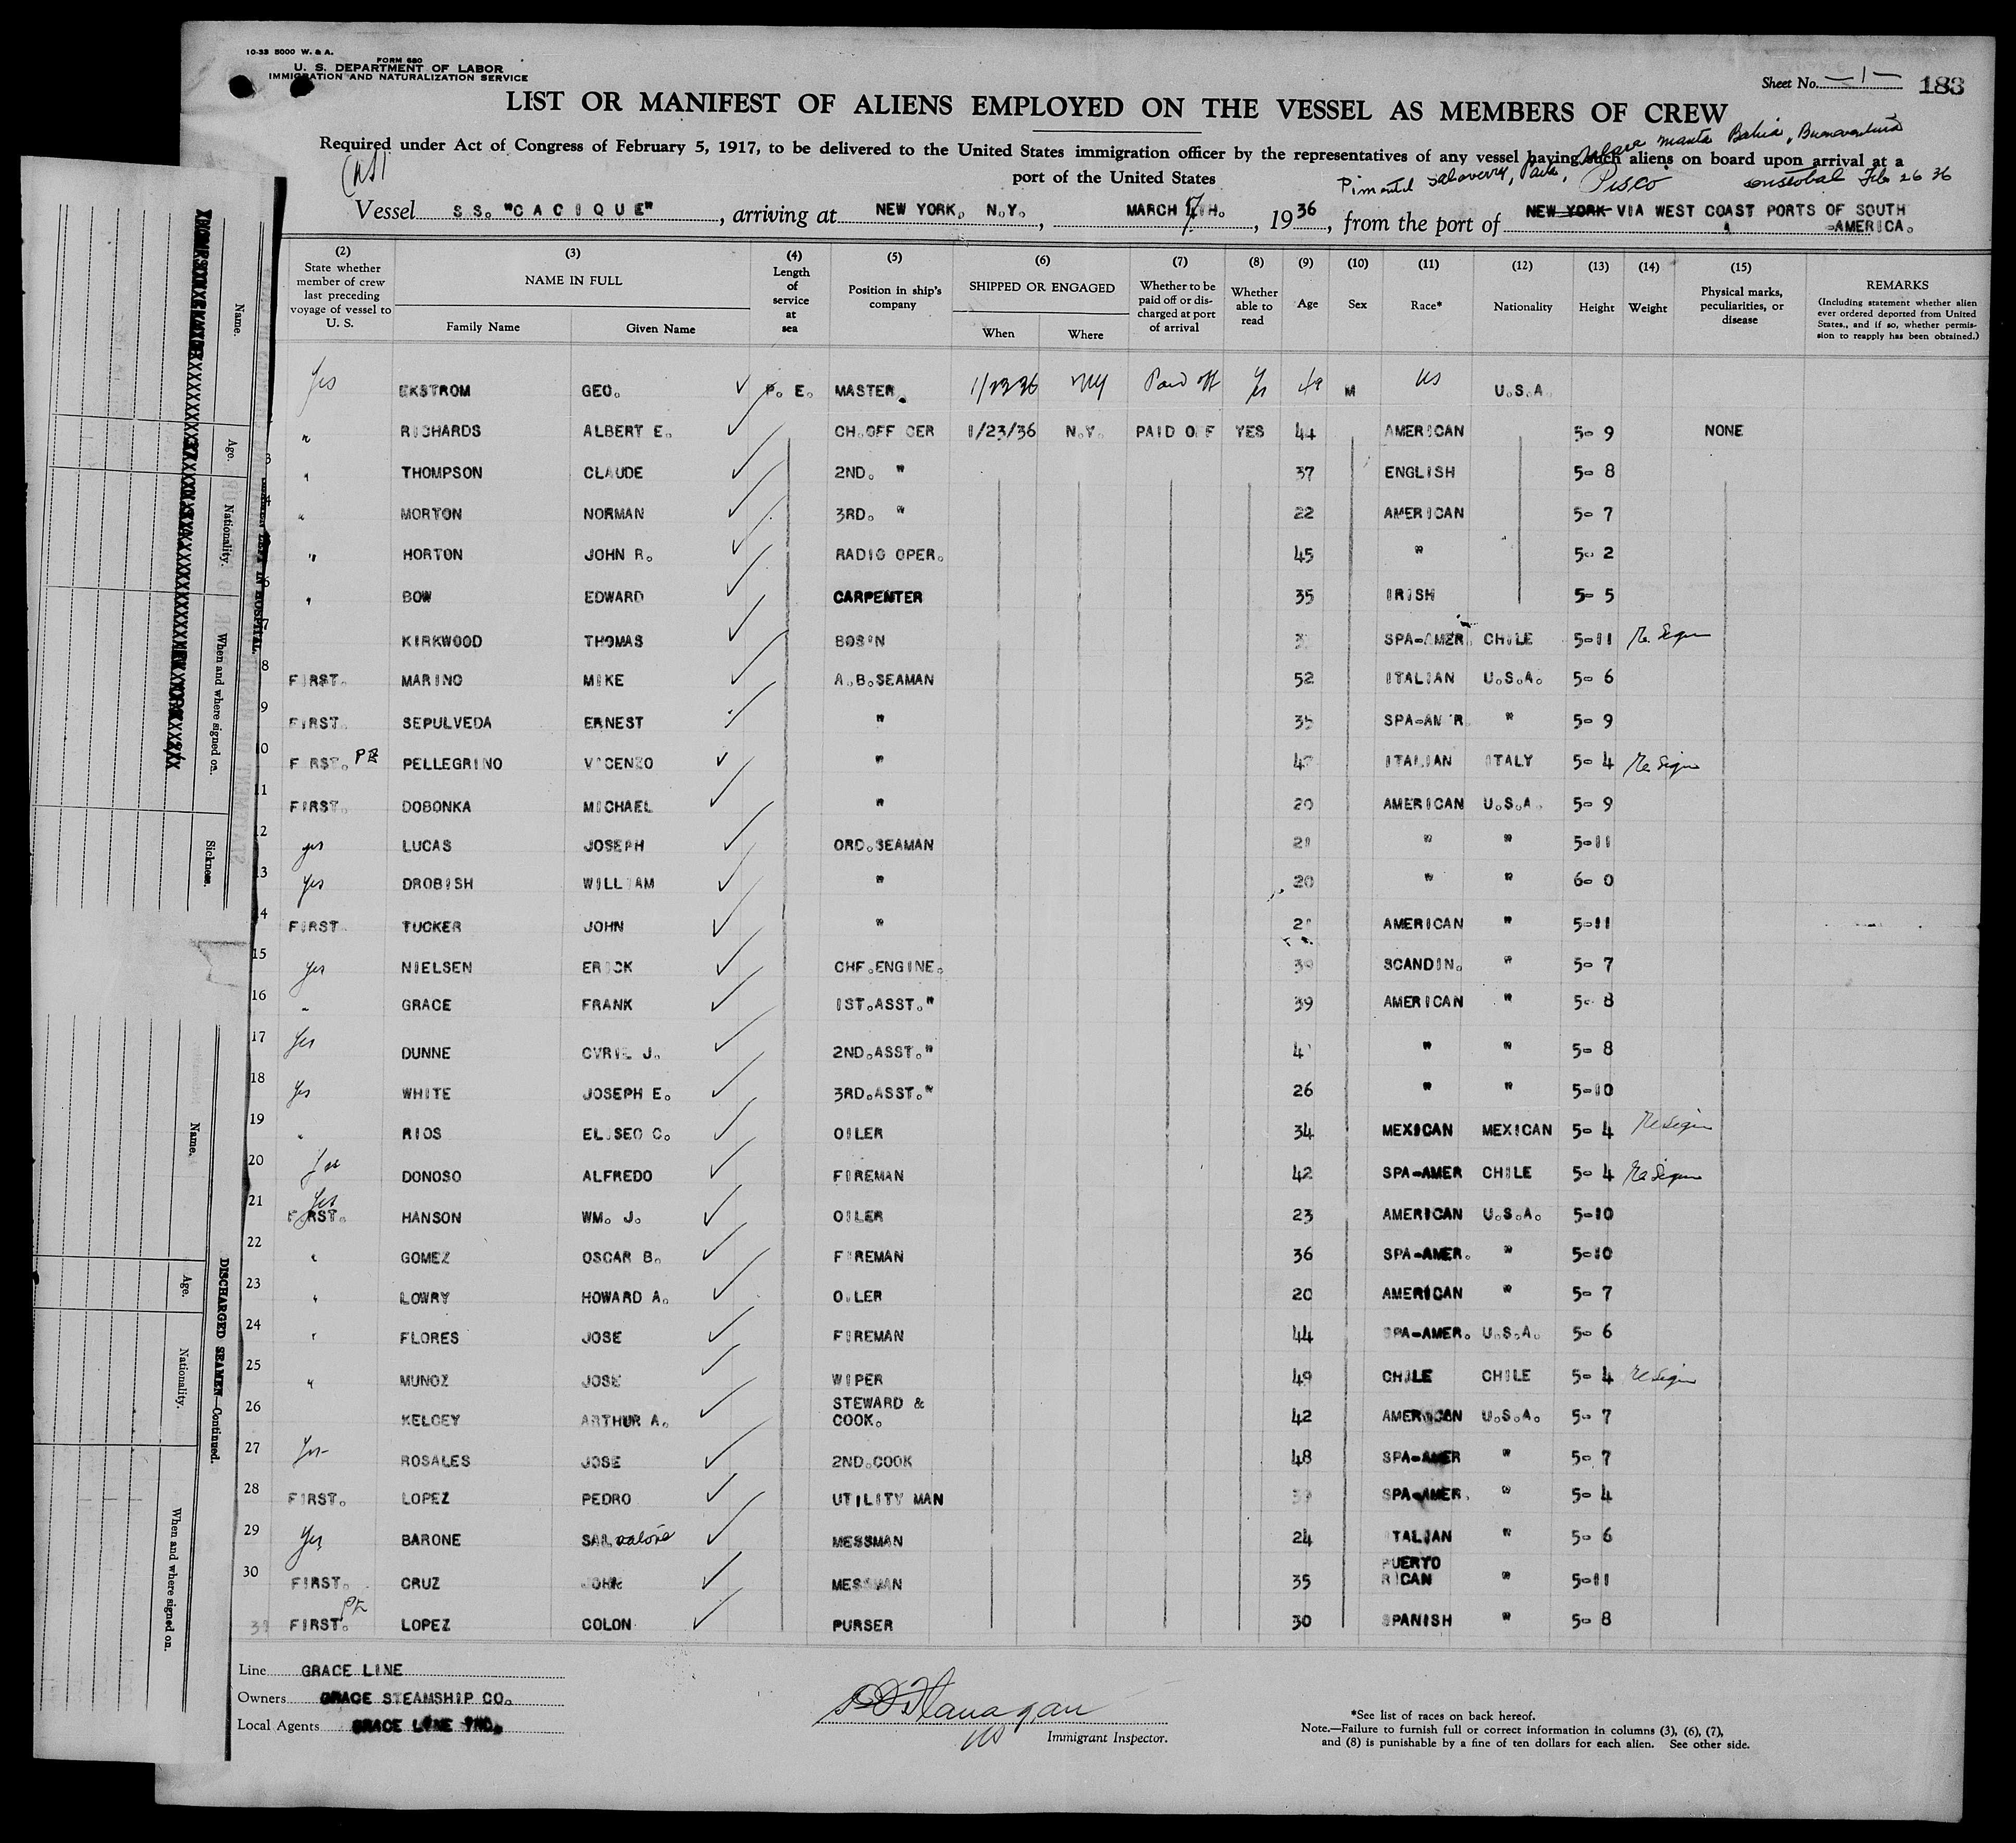 10-33 5000 W. & A.
FORM 680
U. S. DEPARTMENT OF LABOR
IMMIGRATION AND NATURALIZATION SERVICE
Sheet No. -1- 183
LIST OR MANIFEST OF ALIENS EMPLOYED ON THE VESSEL AS MEMBERS OF CREW
Required under Act of Congress of February 5, 1917, to be delivered to the United States immigration officer by the representatives of any vessel having such aliens on board upon arrival at a
port of the United States
Manta Bahia, Buenaventura
Pimentel Salaverry, Paita, Pisco Cristobal Feb 26 36
Vessel S S. "CACIQUE", arriving at NEW YORK, N.Y., MARCH TH. 1936, from the port of NEW YORK VIA WEST COAST PORTS OF SOUTH
AMERICA.
(2) State whether member of crew last preceding voyage of vessel to U. S.
(3) NAME IN FULL
Family Name Given Name
(4) Length of service at sea
(5) Position in ship's company
(6) SHIPPED OR ENGAGED
When Where
(7) Whether to be paid off or discharged at port of arrival
(8) Whether able to read
(9) Age
(10) Sex
(11) Race*
(12) Nationality
(13) Height
(14) Weight
(15) Physical marks, peculiarities, or disease
REMARKS
(Including statement whether alien ever ordered deported from United States., and if so, whether permission to reapply has been obtained.)
Yes EKSTROM GEO. P. E. MASTER 1/23 36 NY Paid off Yes M US U.S.A.
" RICHARDS ALBERT E. CH.OFFICER 1/23/36 N.Y. PAID OFF YES 44 AMERICAN 5-9 NONE
3 " THOMPSON CLAUDE 2ND. " 37 ENGLISH 5-8
4 " MORTON NORMAN 3RD. " 22 AMERICAN 5-7
" HORTON JOHN R. RADIO OPER. 45 " 5-2
6 " BOW EDWARD CARPENTER 35 IRISH 5-5
7 KIRKWOOD THOMAS BOS'N SPA-AMER. CHILE 5-11 Re. Sign
8 FIRST. MARINO MIKE A.B.SEAMAN 52 ITALIAN U.S.A. 5-6
9 FIRST. SEPULVEDA ERNEST " 35 SPA-AM'R. " 5-9
10 FIRST. PE PELLEGRINO VICENZO " ITALIAN ITALY 5-4 Re Sign
11 FIRST. DOBONKA MICHAEL " 20 AMERICAN U.S.A. 5-9
12 yes LUCAS JOSEPH ORD.SEAMAN 21 " " 5-11
13 Yes DROBISH WILLIAM " 20 " " 6-0
14 FIRST TUCKER JOHN " AMERICAN " 5-11
15 Yes NIELSEN ERICK CHF.ENGINE. SCANDIN. " 5-7
16 " GRACE FRANK 1ST.ASST." 39 AMERICAN " 5-8
17 Yes DUNNE CYRIL J. 2ND.ASST." " " 5-8
18 Yes WHITE JOSEPH E. 3RD.ASST." 26 " " 5-10
19 " RIOS ELISEO C. OILER 34 MEXICAN MEXICAN 5-4 Re Sign
20 Yes DONOSO ALFREDO FIREMAN 42 SPA-AMER CHILE 5-4 Re Sign
21 Yes FIRST. HANSON WM. J. OILER 23 AMERICAN U.S.A. 5-10
22 " GOMEZ OSCAR B. FIREMAN 36 SPA-AMER. " 5-10
23 " LOWRY HOWARD A. OILER 20 AMERICAN " 5-7
24 " FLORES JOSE FIREMAN 44 SPA-AMER. U.S.A. 5-6
25 " MUNOZ JOSE WIPER 49 CHILE CHILE 5-4 Re Sign
26 KELCEY ARTHUR A. STEWARD & COOK. 42 AMERICAN U.S.A. 5-7
27 Yes ROSALES JOSE 2ND.COOK 48 SPA-AMER " 5-7
28 FIRST. LOPEZ PEDRO UTILITY MAN SPA-AMER. " 5-4
29 Yes BARONE SALvatore MESSMAN 24 ITALIAN " 5-6
30 FIRST. CRUZ JOHN MESSMAN 35 PUERTO RICAN " 5-11
FIRST. PE LOPEZ COLON PURSER 30 SPANISH " 5-8
Line GRACE LINE
Owners GRACE STEAMSHIP CO.
Local Agents GRACE LINE INC.
Flanagan
Immigrant Inspector.
*See list of races on back hereof.
Note.—Failure to furnish full or correct information in columns (3), (6), (7),
and (8) is punishable by a fine of ten dollars for each alien. See other side.
Name.
Age.
Nationality.
When and where signed on.
Sickness.
IN HOSPITAL.
DISCHARGED SEAMEN—Continued.
Name.
Age.
Nationality.
When and where signed on.